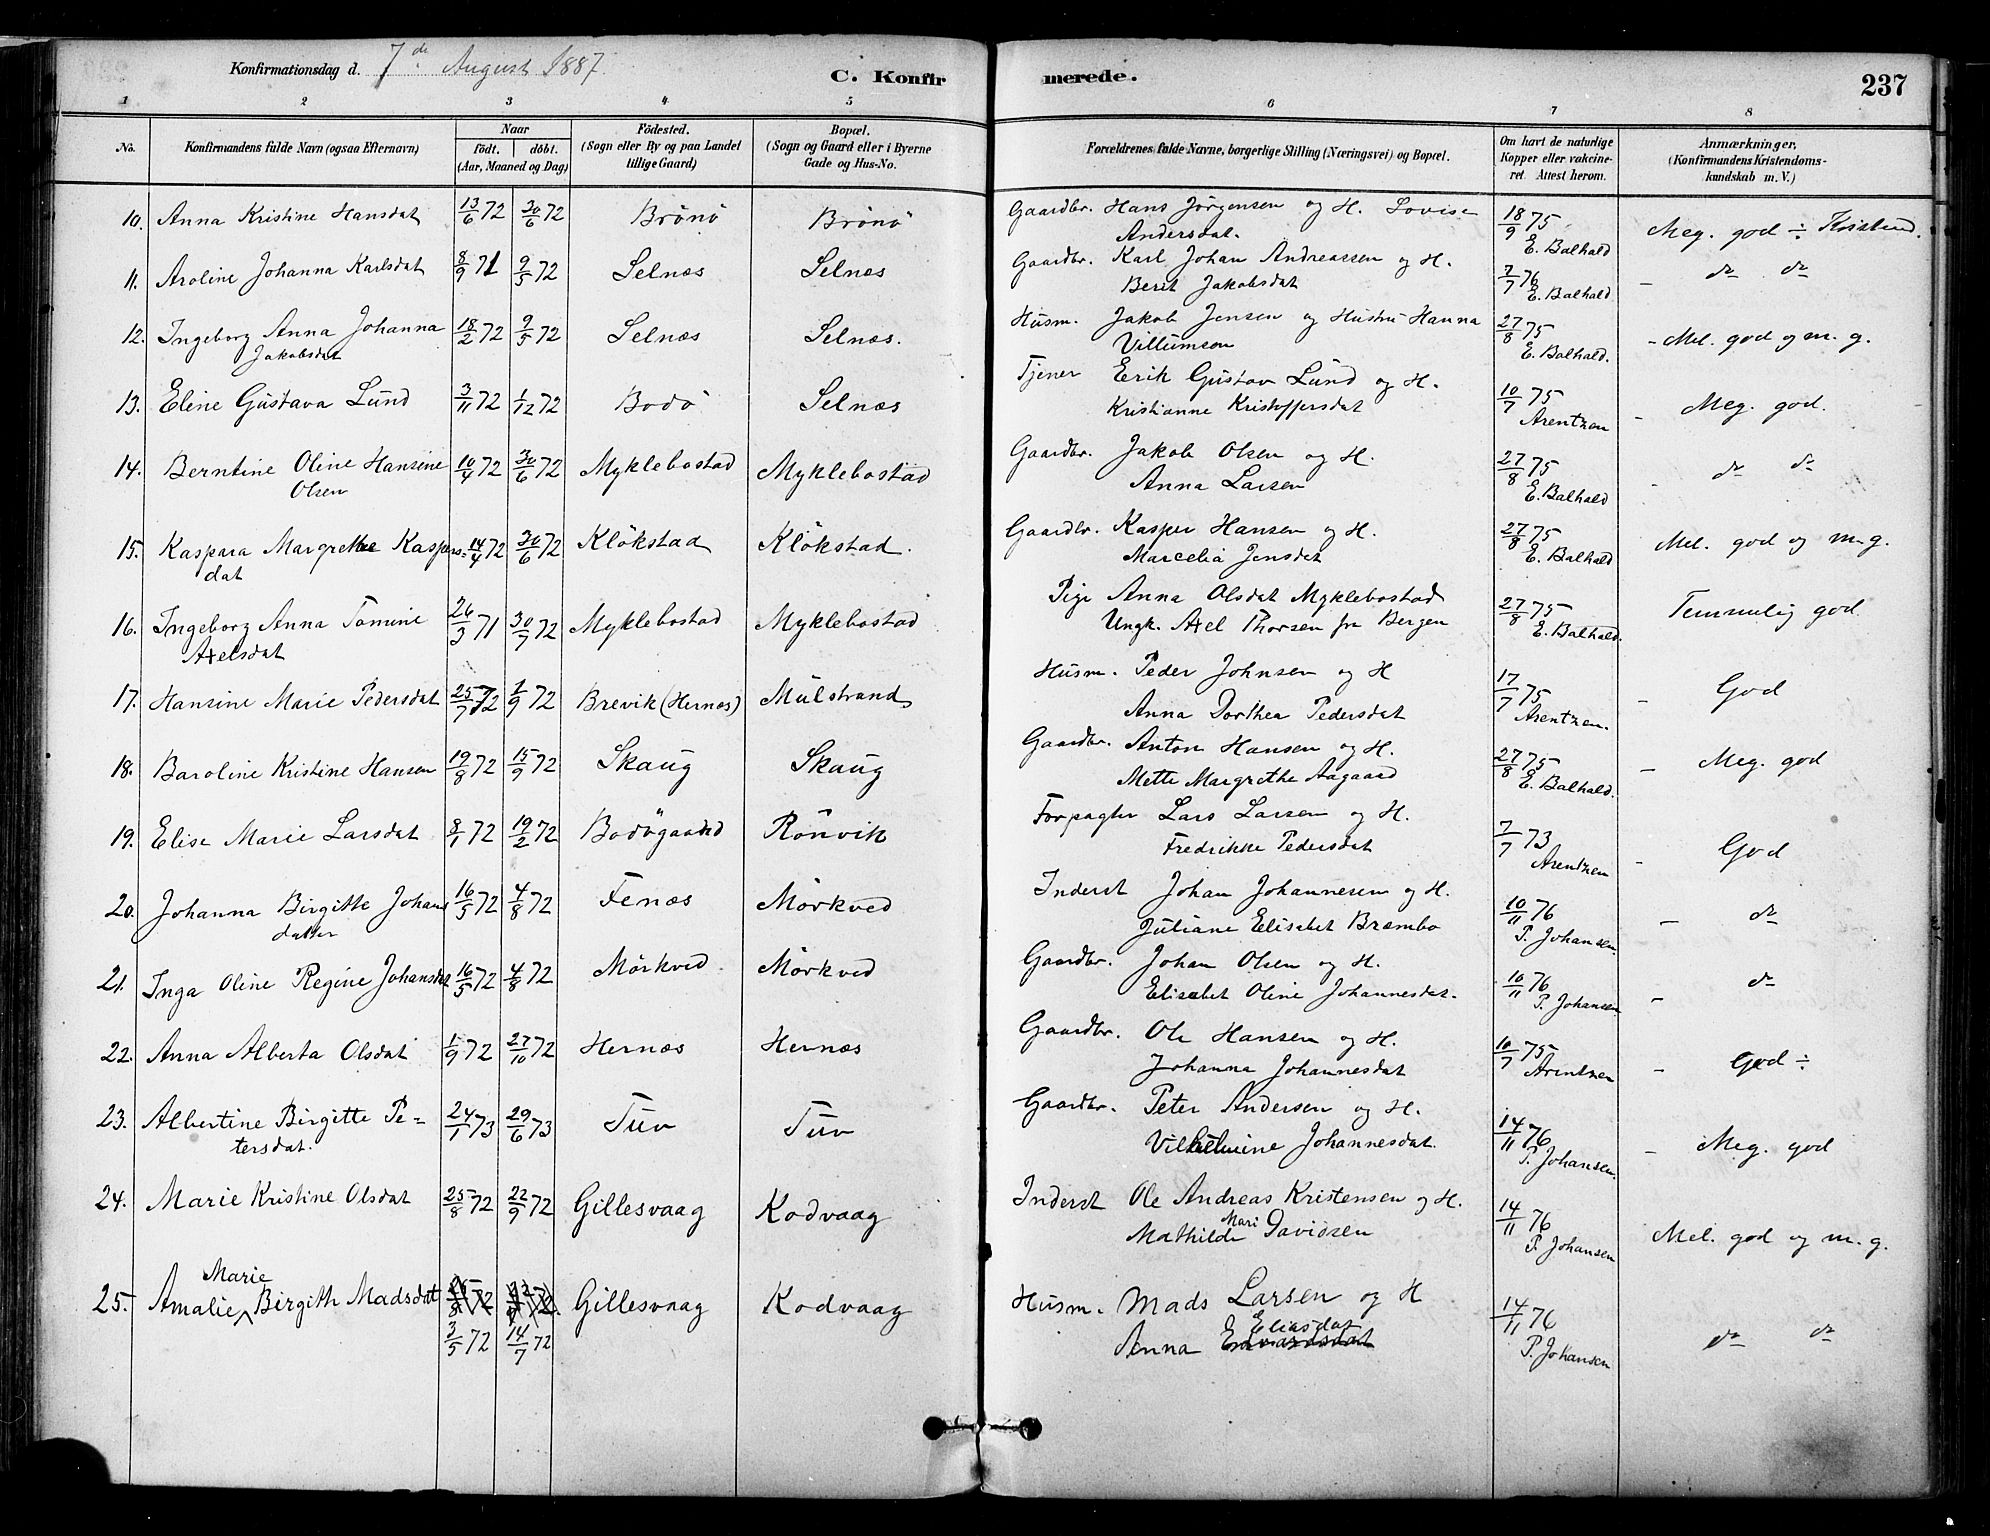 Konfirmationsdag d. 7de August 1887. C. Konfirmerede. 237
1 2 3 4 5 6 7 8
No. Konfirmandens fulde Navn (ogsaa Efternavn) Naar födt. döbt. (Aar, Maaned og Dag) Födested. (Sogn eller By og paa Landet tillige Gaard) Bopæl. (Sogn og Gaard eller i Byerne Gade og Hus-No. Forældrenes fulde Navne, borgerlige Stilling (Næringsvei) og Bopæl. Om havt de naturlige Kopper eller vakcineret. Attest herom. Anmærkninger, (Konfirmandens Kristendomskundskab m. V.)
10. Anna Kristine Hansdat 13/6 72 30/6 72 Brönö Brönö Gaardbr. Hans Jörgensen og H. Lovise 18/9 75 Meg. god ÷ Kristend.
Andersdat. E. Balhald
11. Aroline Johanna Karlsdat 8/9 71 9/5 72 Selnæs Selnæs Gaardbr. Karl Johan Andreassen og H. 7/7 76 – do do
Berit Jakobsdat E. Balhald
12. Ingeborg Anna Johanna 18/2 72 9/5 72 Selnæs Selnæs. Husm. Jakob Jensen og Hustru Hanna 27/8 75 – Mel. god og m. g.
Jakobsdat Villumsen E. Balhald.
13. Eline Gustava Lund 3/11 72 1/12 72 Bodö Selnæs Tjener Erik Gustav Lund og H. 10/7 75 – Meg. god.
Kristianne Kristoffersdat Arentzen
14. Berntine Oline Hansine 10/4 72 30/6 72 Myklebostad Myklebostad Gaardbr. Jakob Olsen og H. 27/8 75 – do do
Olsen Anna Larsen E. Balhald
15. Kaspara Margrethe Kaspers= 14/4 72 30/6 72 Klökstad Klökstad. Gaardbr. Kasper Hansen og H. 27/8 75 Mel. god og m. g.
dat Marcelia Jensdat E. Balhald
16. Ingeborg Anna Tomine 26/3 71 30/7 72 Myklebostad Myklebostad Pige Anna Olsdat Myklebostad 27/8 75 Temmelig god
Axelsdat Ungk. Axel Thorsen fra Bergen E. Balhald.
17. Hansine Marie Pedersdat 25/7 72 1/9 72 Brevik (Hernæs) Mulstrand Husm. Peder Johnsen og H 17/7 75 – God
Anna Dorthea Pedersdat Arentzen.
18. Baroline Kristine Hansen 19/8 72 15/9 72 Skaug Skaug Gaardbr. Anton Hansen og H. 27/8 75 – Meg. god
Mette Margrethe Aagaard E. Balhald.
19. Elise Marie Larsdat 8/1 72 19/2 72 Bodögaard Rönvik Forpagter Lars Larsen og H. 7/7 73 – God
Fredrikke Pedersdat Arentzen
20. Johanna Birgitte Johans 16/5 72 4/8 72 Fenæs Mörkved Inderst Johan Johannesen og H. 10/11 76 – do
datter Juliane Elisabet Brembo P. Johansen.
21. Inga Oline Regine Johansdat 16/5 72 4/8 72 Mörkved Mörkved Gaardbr. Johan Olsen og H. 10/11 76 – do
Elisabet Oline Johannesdat. P. Johansen.
22. Anna Alberta Olsdat 1/9 72 27/10 72 Hernæs Hernæs Gaardbr. Ole Hansen og H. 10/7 75 – God ÷
Johanna Johannesdat Arentzen
23. Albertine Birgitte Pe= 24/1 73 29/6 73 Tuv Tuv Gaardbr. Peter Andersen og H. 14/11 76 – Meg. god
tersdat. Vilhelmine Johannesdat. P. Johansen.
24. Marie Kristine Olsdat 25/8 72 22/9 72 Gillesvaag Kodvaag Inderst Ole Andreas Kristensen og H. 14/11 76 Mel. god og m. g.
Mathilde Mari Davidsen P. Johansen
25. Amalie Marie Birgith Madsdat 25/8 72 22/9 72. Gillesvaag Kodvaag Husm. Mads Larsen og H 14/11 76 do do
3/5 72 14/7 72 Anna Edvardsdat Eliasdat P. Johansen